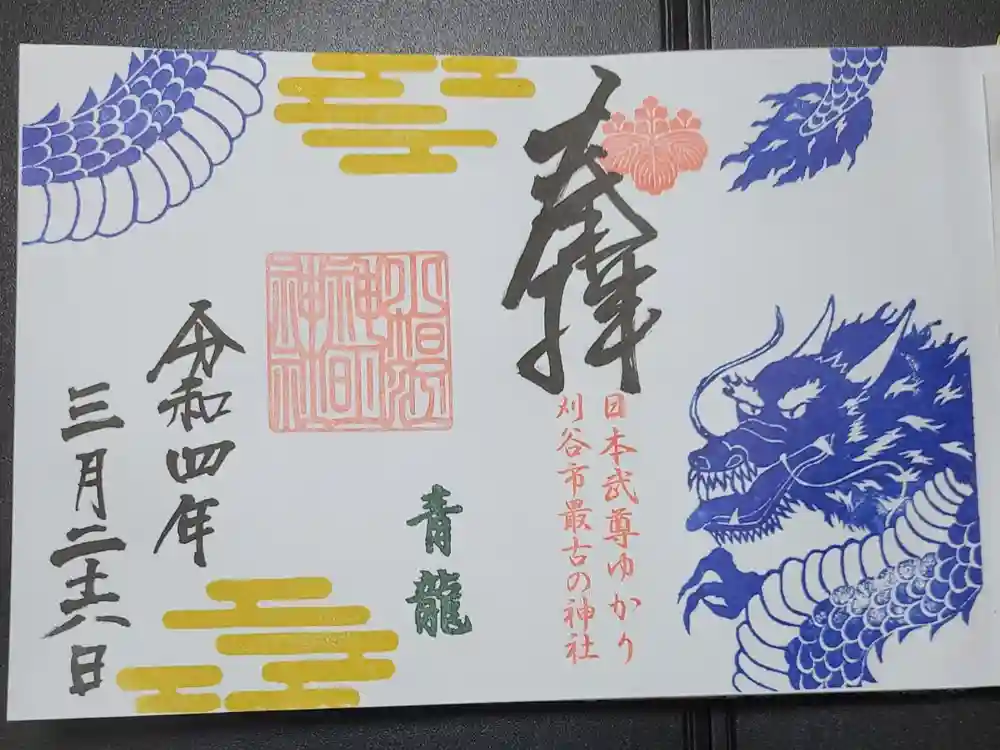 奉拝
日本武尊ゆかり
刈谷市最古の神社
小垣江
神明
神社
青龍
令和四年
三月二十六日